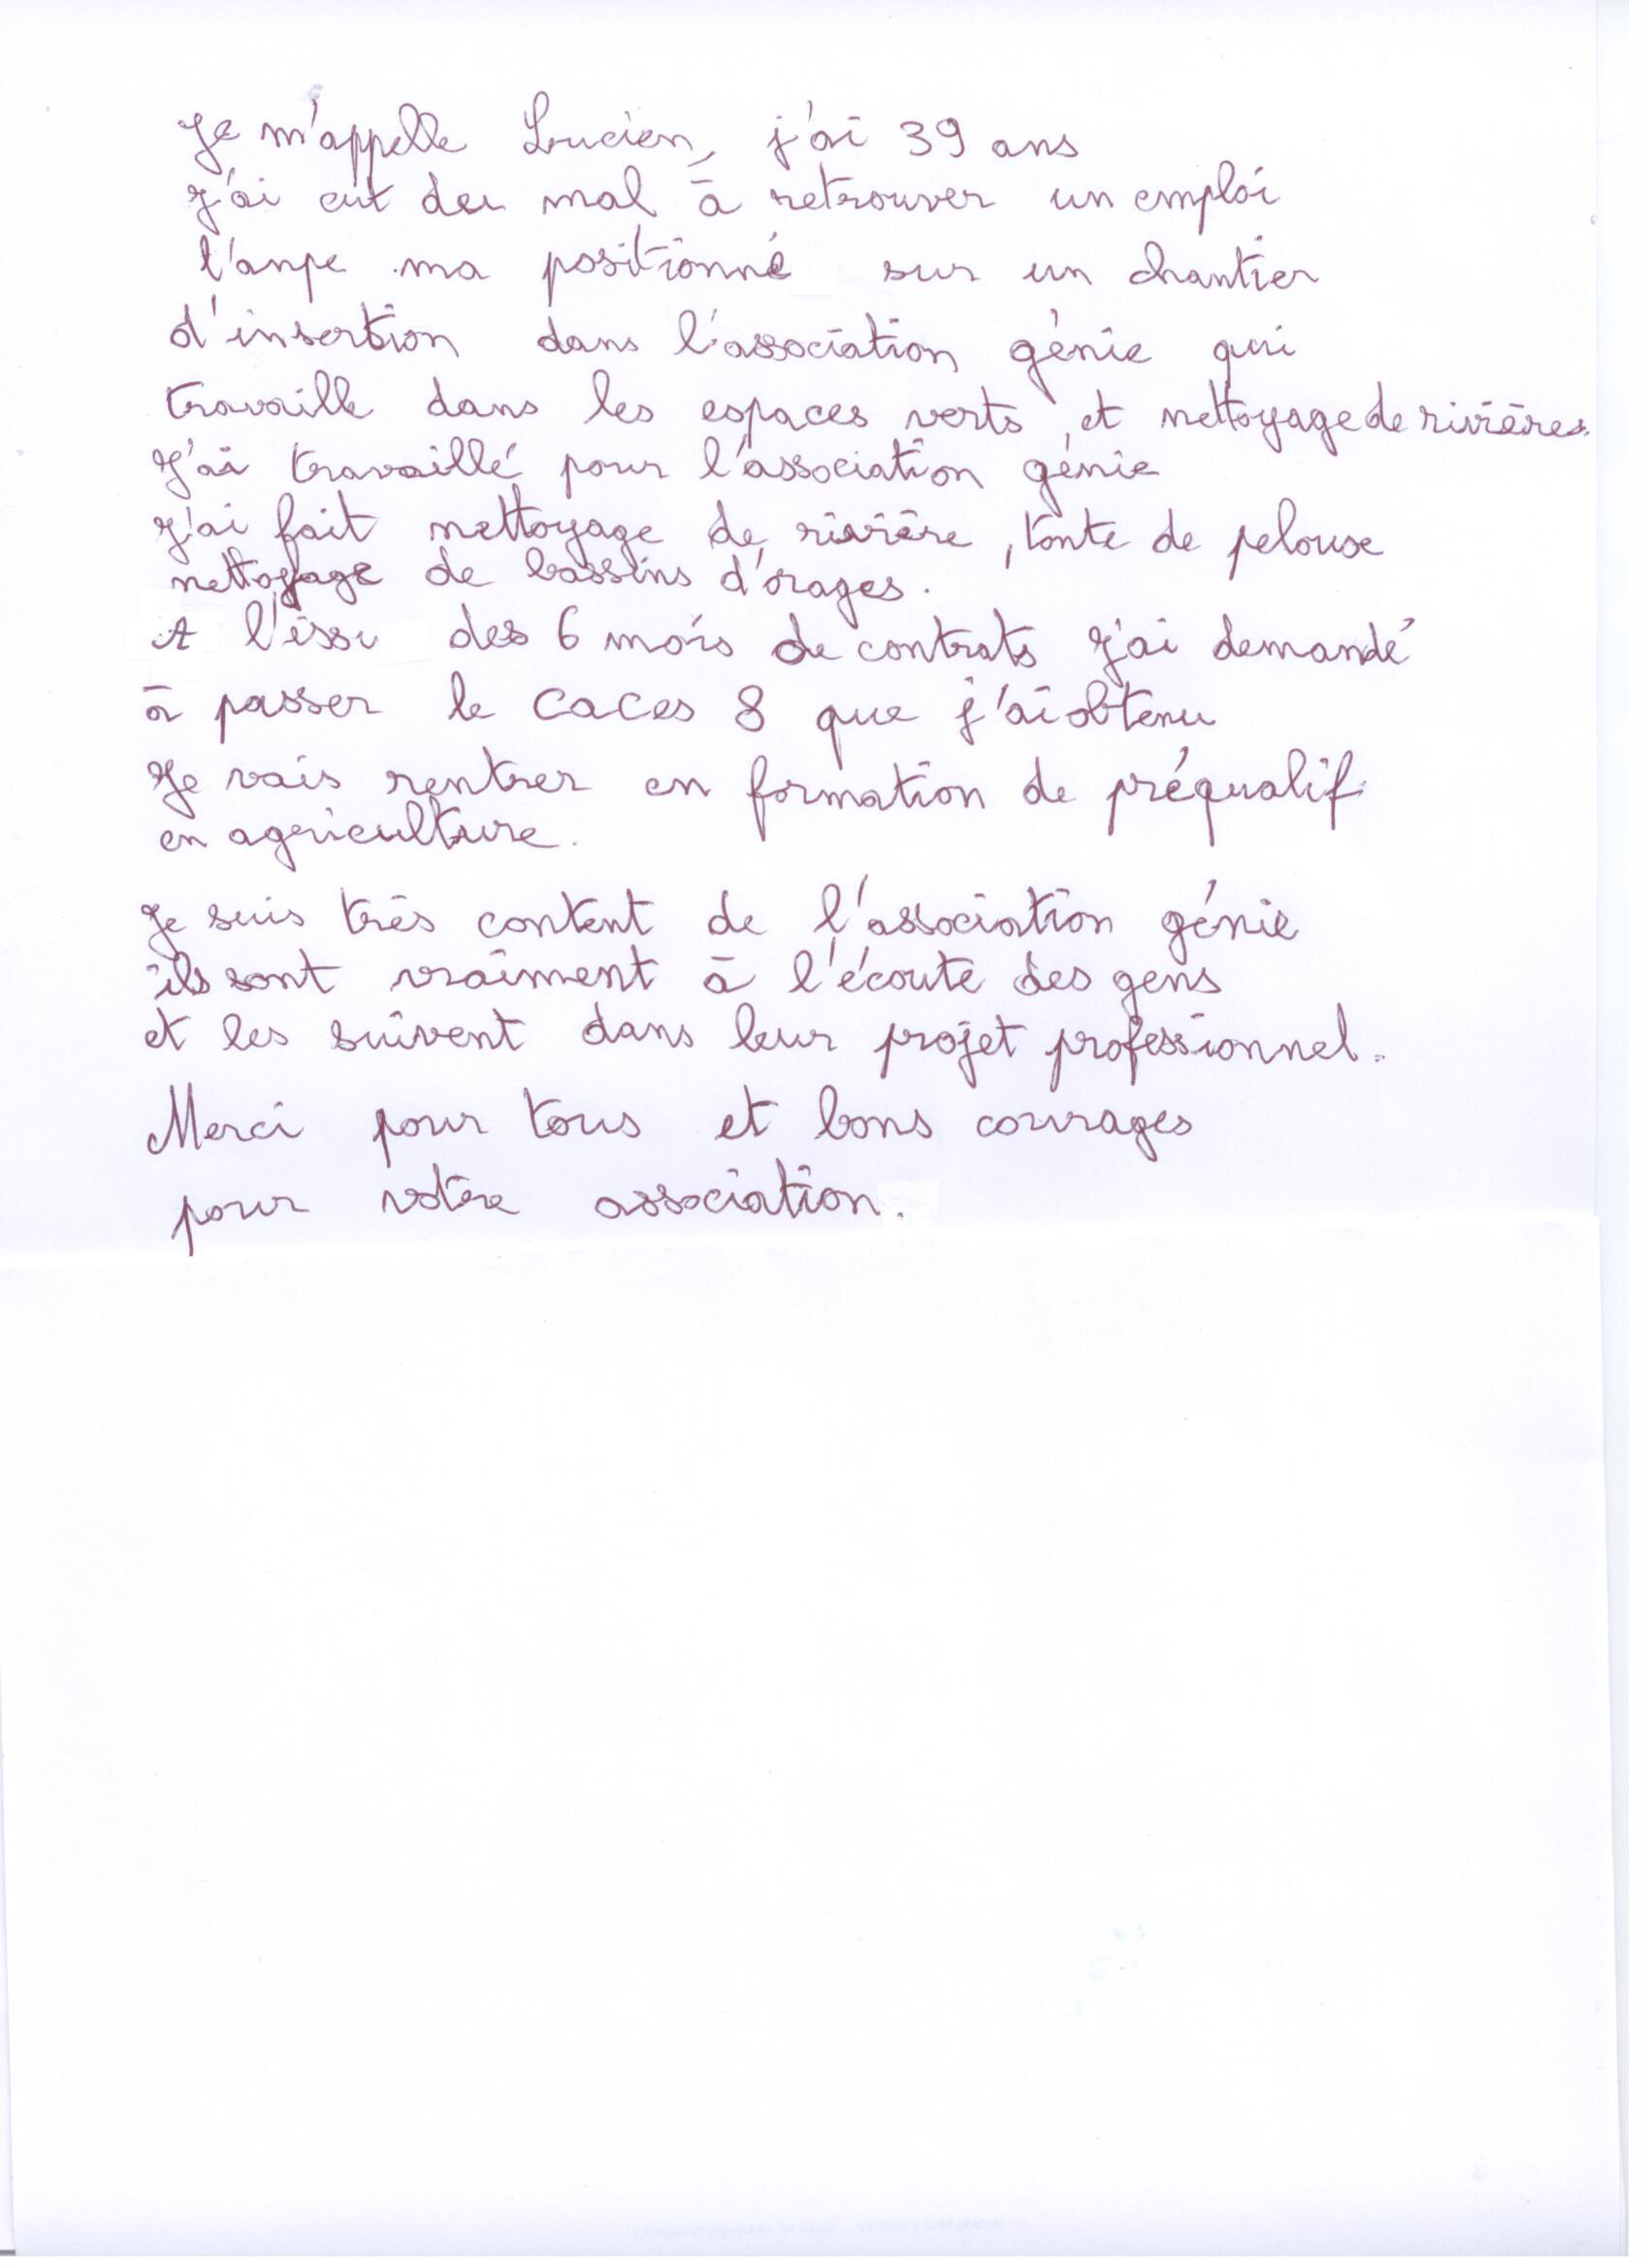 Je m'appelle Lucien, j'ai 39 ans
J'ai eut du mal à retrouver un emploi
l'anpe ma positionné sur un chantier
d'insertion dans l'association génie qui
travaille dans les espaces verts, et nettoyage de rivières.
J'ai travaillé pour l'association génie
J'ai fait nettoyage de rivière, tonte de pelouse
nettoyage de bassins d'orages.
A l'issu des 6 mois de contrats j'ai demandé
à passer le caces 8 que j'ai obtenu
Je vais rentrer en formation de préqualif
en agriculture.
Je suis très content de l'association génie
ils sont vraiment à l'écoute des gens
et les suivent dans leur projet professionnel.
Merci pour tous et bons courages
pour votre association.